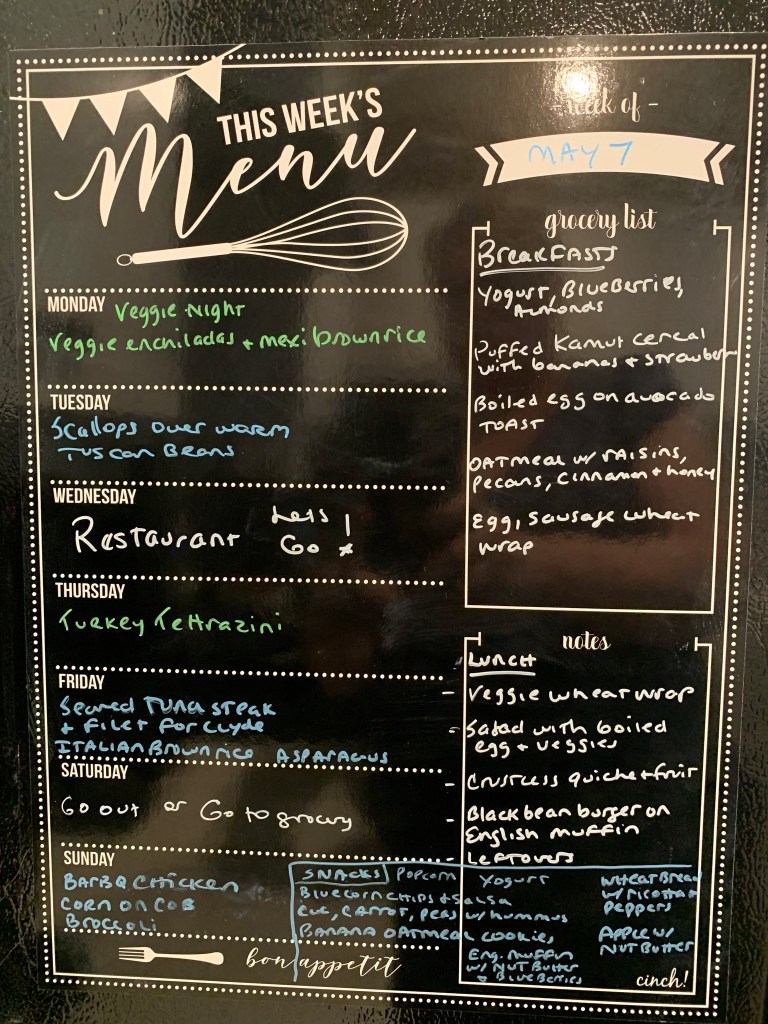 THIS WEEK'S
Menu
- week of -
MAY 7
MONDAY Veggie Night
Veggie enchiladas + mexi brown rice
TUESDAY
Scallops over warm
Tuscan Beans
WEDNESDAY
Restaurant Let's !
Go
THURSDAY
Turkey Tettrazini
FRIDAY
Seared Tuna steak
+ Filet for Clyde
ITALIAN Brown rice ASPARAGUS
SATURDAY
Go out or Go to grocery
SUNDAY
BarBQ Chicken
CORN ON COB
BROCCOLI
bon appetit
grocery list
BreakFASTS
Yogurt, BlueBerries,
Almonds
Puffed Kamut cereal
with bananas + strawberr
Boiled egg on avocado
TOAST
OATmeal w/ raisins,
pecans, cinnamon + honey
Egg, sausage wheat
wrap
notes
LUNCH
- Veggie wheat wrap
- Salad with boiled
egg + veggies
- Crustless quiche + fruit
- Black bean burger on
English muffin
- Leftovers
SNACKS Popcorn
Blue corn chips + salsa
Cuc, carrot, peas w/ hummus
BANANA OATMEAL cookies
Yogurt
Eng. muffin
w/ NUT Butter
+ BlueBerries
WHEAT Bread
w/ ricotta +
peppers
Apple w/
NUT Butter
cinch!